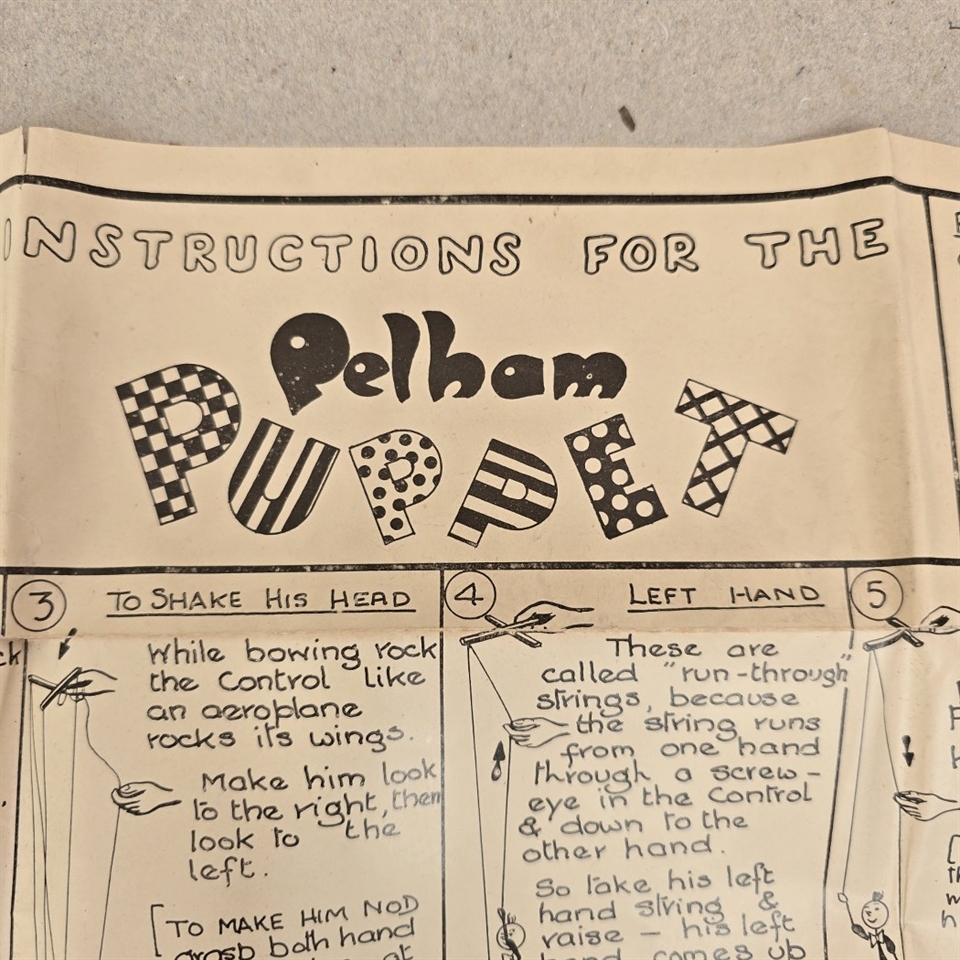 INSTRUCTIONS FOR THE
Pelham
PUPPET
3 TO SHAKE HIS HEAD
While bowing rock
the Control like
an aeroplane
rocks its wings.
Make him look
to the right, then
look to the
left.
[TO MAKE HIM NOD
grasp both hand
at
4 LEFT HAND
These are
called "run-through"
strings, because
the string runs
from one hand
through a screw-
eye in the Control
& down to the
other hand.
So take his left
hand string &
raise – his left
hand comes up
5